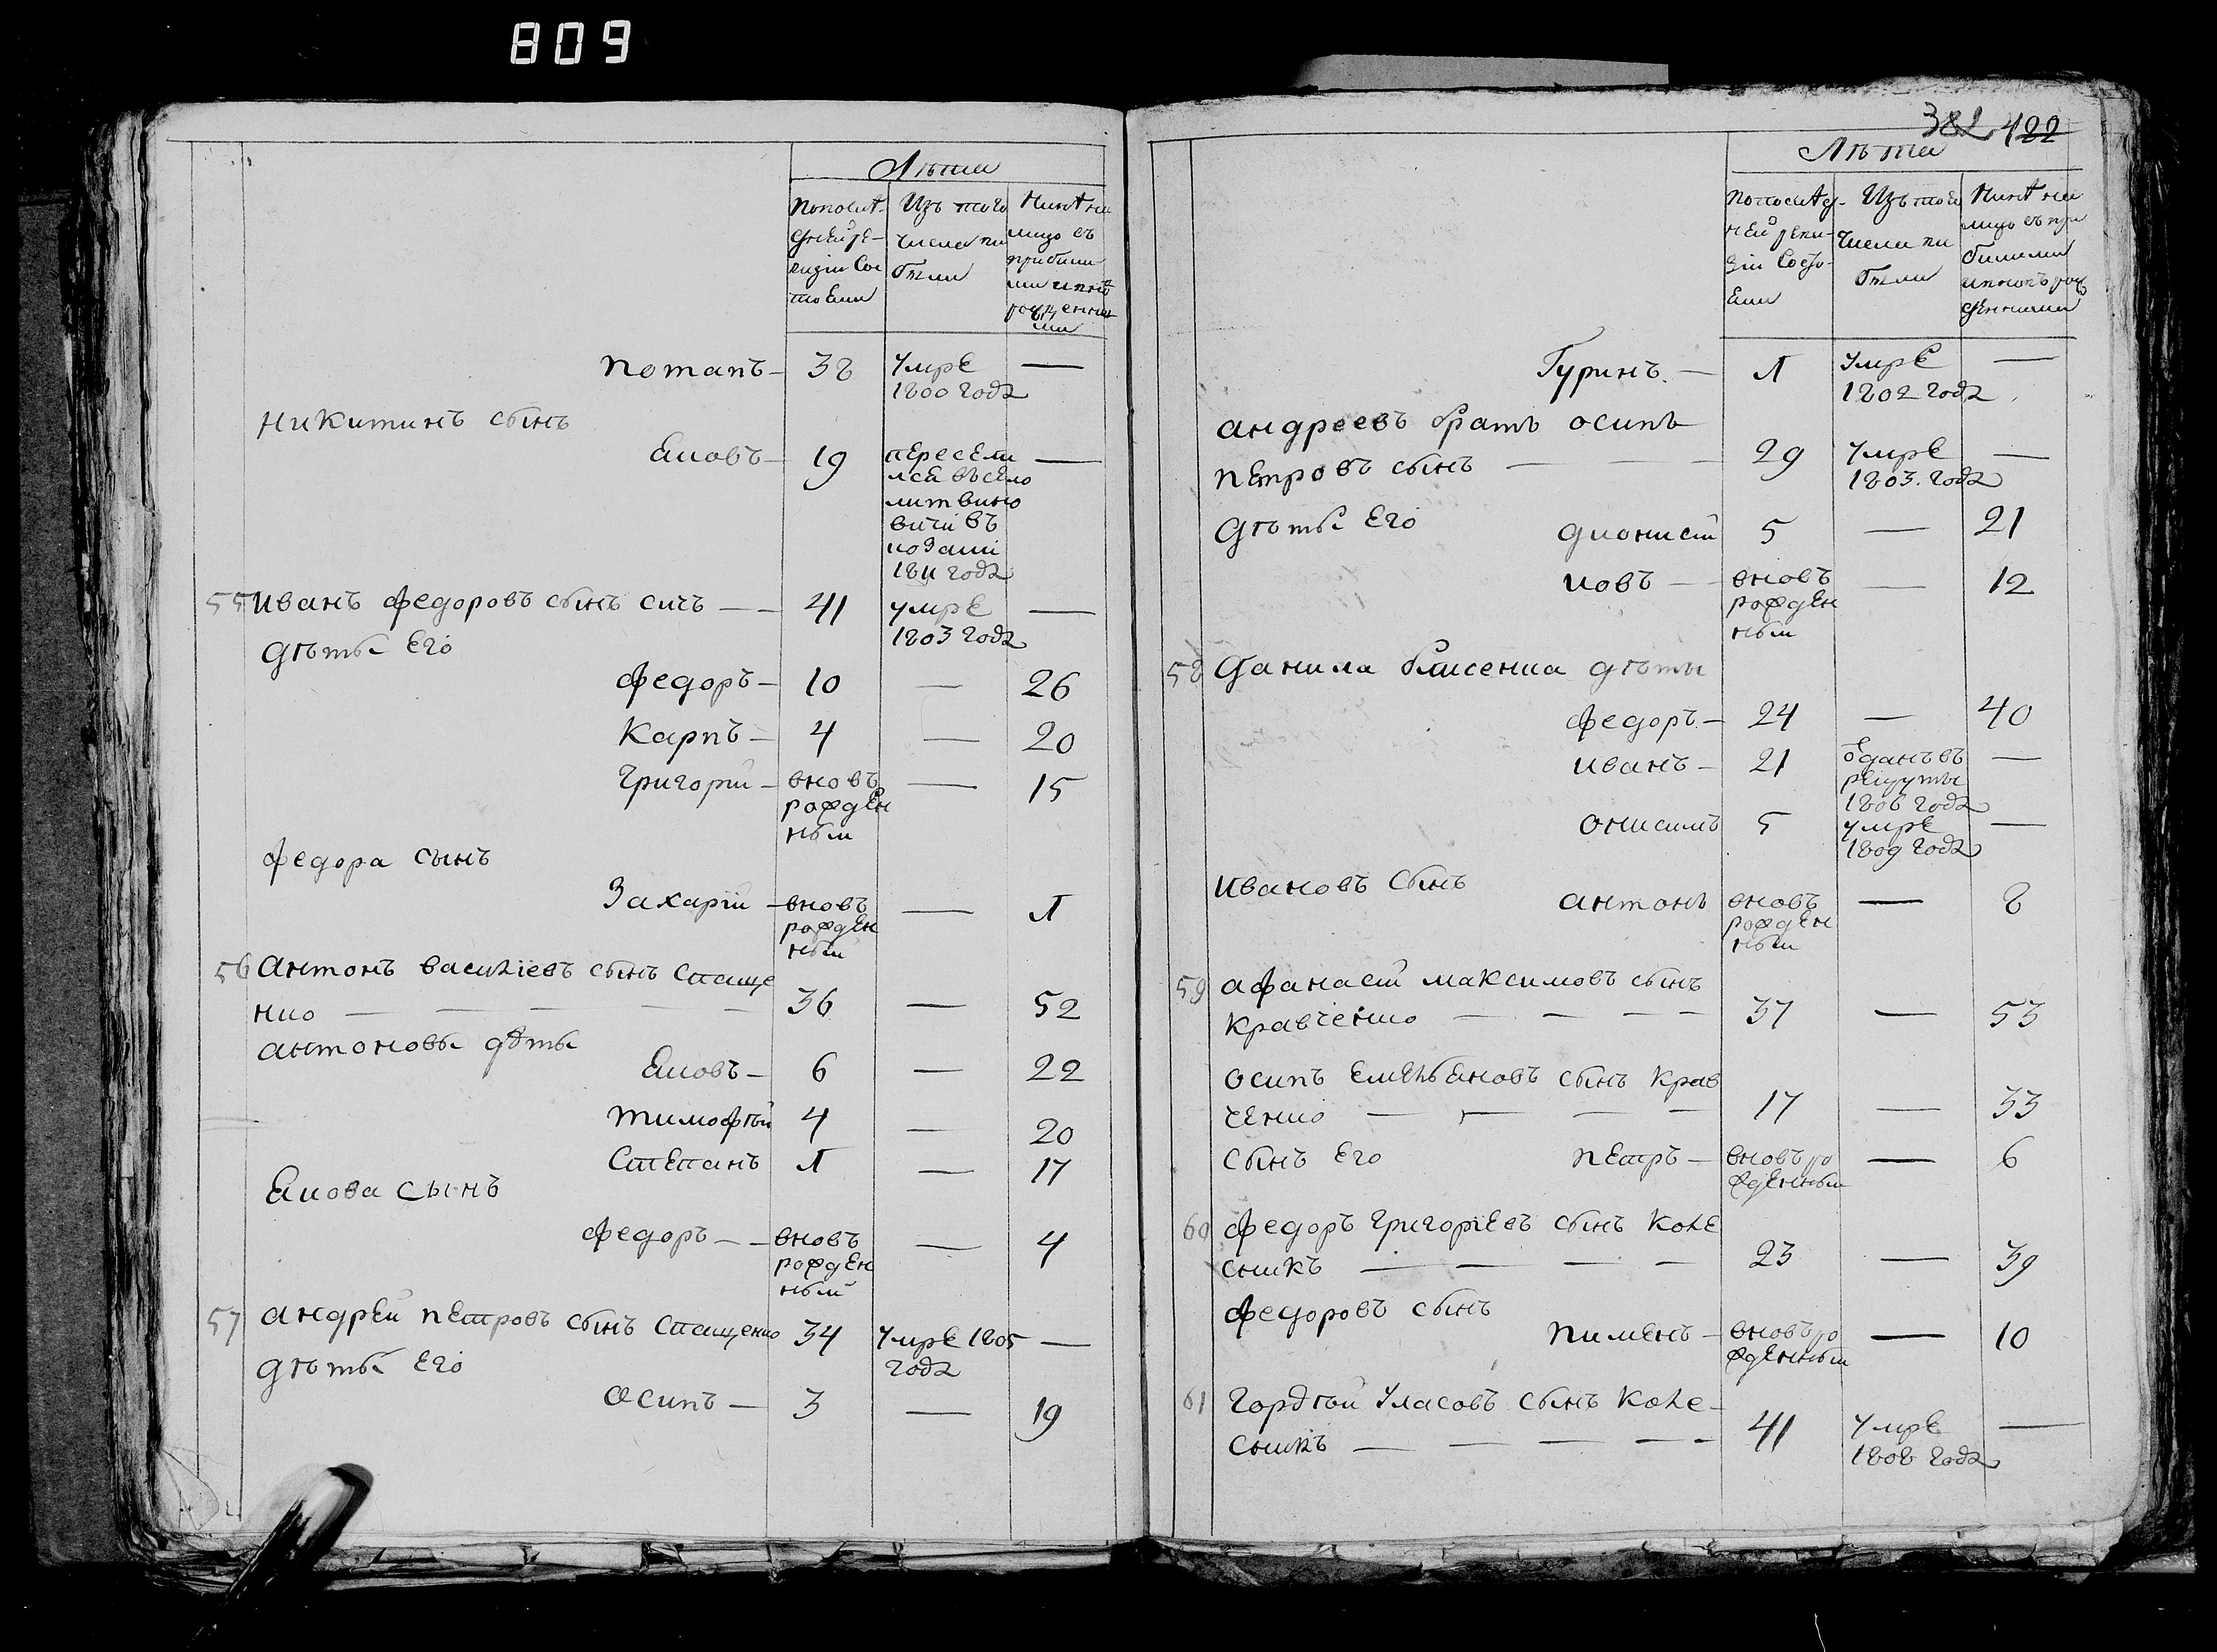 809
Лѣта
По послѣ-
дней ре-
визіи Сос
тоѣли
Изъ того
числа вы
были
Нынѣ на
лицо съ
прибыли
ми и нов
рожденны
ми
Потапъ — 38 Умре —
1800 года
Никитинъ сынъ
Яковъ — 19 пересели —
лся въ село
литвино
вичи въ
козаки
1811 года
55 Иванъ федоровъ сынъ сичъ — — 41 умре —
1803 года
дѣты Его
федоръ — 10 — 26
Карпъ — 4 — 20
Григорій — вновъ — 15
рожден
ный
федора сынъ
Захарій — вновъ — 1
рожден
ный
56 антонъ василіевъ сынъ Стаще
нко — — — — 36 — 52
антоновы дѣты
Яковъ — 6 — 22
тимофѣй 4 — 20
Степанъ 1 — 17
Якова сынъ
федоръ — — вновъ — 4
рожден
ный
57 андрей Петровъ сынъ Стащенко 34 Умре 1805 —
года
дѣты Его
Осипъ — 3 — 19
382 422
Лѣта
По послѣд-
ней реви-
зіи Состо-
Яли
Изъ того
числа вы
были
Нынѣ на
лицо съ при
былыми
и новъ рож
денными
Гуринъ — 1 Умре —
1802 года
андреевъ братъ осипъ
петровъ сынъ — — 29 Умре —
1803. года
дѣты Его дионисій 5 — 21
иовъ — вновъ — 12
рожден
ный
58 данила дѣты
федоръ — 24 — 40
иванъ — 21 ѿданъ въ —
рекруты
1806 года
онисимъ 5 умре —
1809 года
Ивановъ сынъ
антонъ вновъ — 8
рожден
ный
59 афанасій максимовъ сынъ
кравченко — — — — 37 — 53
осипъ Емельяновъ сынъ Крав
ченко — — — — 17 — 33
сынъ Его Петръ — вновъ ро — 6
жденный
60 федоръ Григоріевъ сынъ Коле
сникъ — — — — 23 — 39
федоровъ сынъ
пименъ — вновъ ро — 10
жденный
61 Гордѣй Уласовъ сынъ Коле-
сникъ — — — — 41 Умре —
1808 года